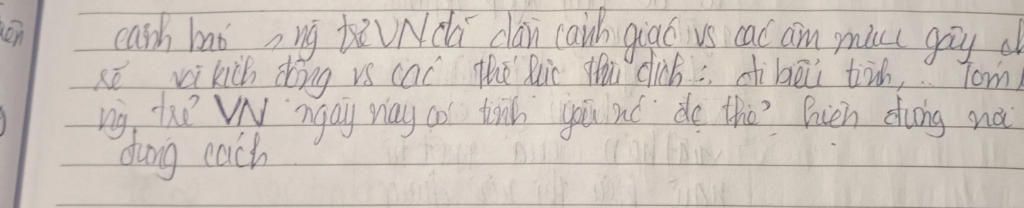 cảnh báo → ng trẻ VN đã dần cảnh giác vs các âm mưu gây ch
rẽ và kích động vs các thế lực thù địch: đi biểu tình,.. Tóm
ng trẻ VN ngày nay có tình yêu nc để thể hiện đúng nơi
đúng cách